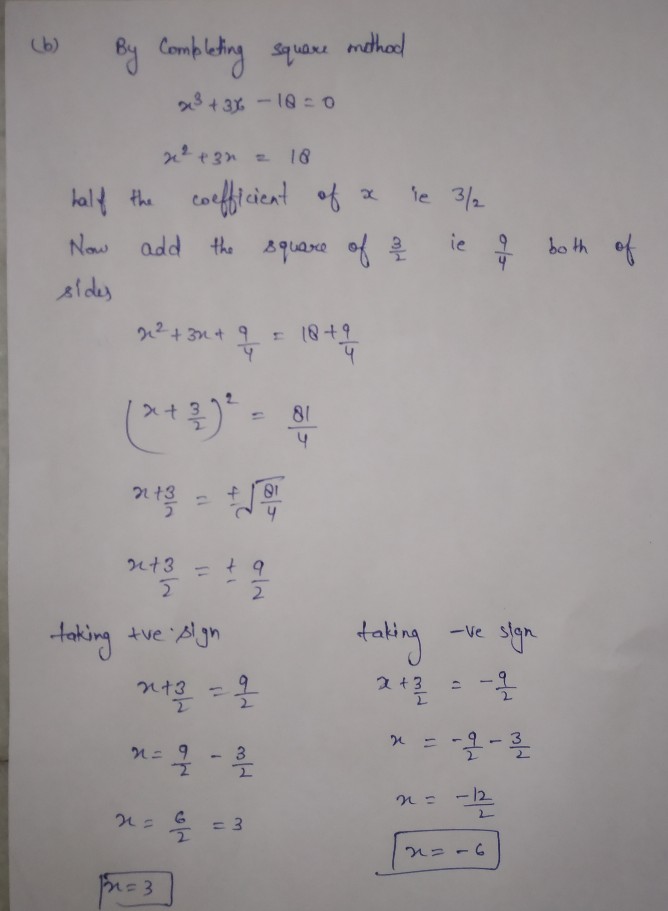 (b) By Completing square mothod
x³ + 3x - 18 = 0
x² + 3x = 18
half the coefficient of x ie 3/2
Now add the square of 3/2 ie 9/4 both of
sides
x² + 3x + 9/4 = 18 + 9/4
(x + 3/2)² = 81/4
x + 3/2 = ± √81/4
x + 3/2 = ± 9/2
taking +ve sign
x + 3/2 = 9/2
x = 9/2 - 3/2
x = 6/2 = 3
x = 3
taking -ve sign
x + 3/2 = -9/2
x = -9/2 - 3/2
x = -12/2
x = -6